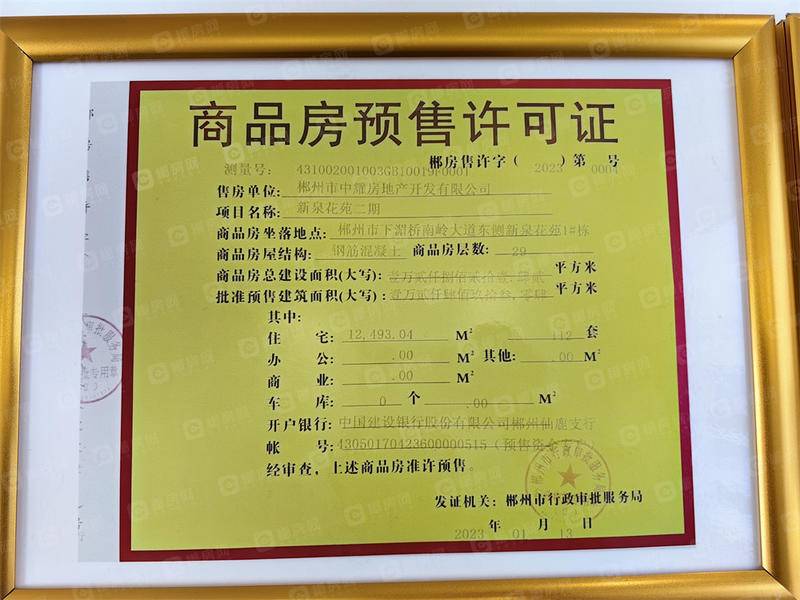 商品房预售许可证
郴房售许字( 2023 )第 0004 号
测量号: 431002001003GB10019F0001
售房单位: 郴州市中耀房地产开发有限公司
项目名称: 新泉花苑二期
商品房坐落地点: 郴州市下湄桥南岭大道东侧新泉花苑1#栋
商品房屋结构: 钢筋混凝土 商品房层数: 29
商品房总建设面积(大写): 壹万贰仟捌佰贰拾叁.肆贰 平方米
批准预售建筑面积(大写): 壹万贰仟肆佰玖拾叁.零肆 平方米
其中:
住 宅: 12,493.04 M² 112 套
办 公: .00 M² 其他: .00 M²
商 业: .00 M²
车 库: 0 个 .00 M²
开户银行: 中国建设银行股份有限公司郴州仙鹿支行
帐 号: 43050170423600000515 (预售资金专户)
经审查,上述商品房准许预售。
发证机关: 郴州市行政审批服务局
2023 年 01 月 13 日